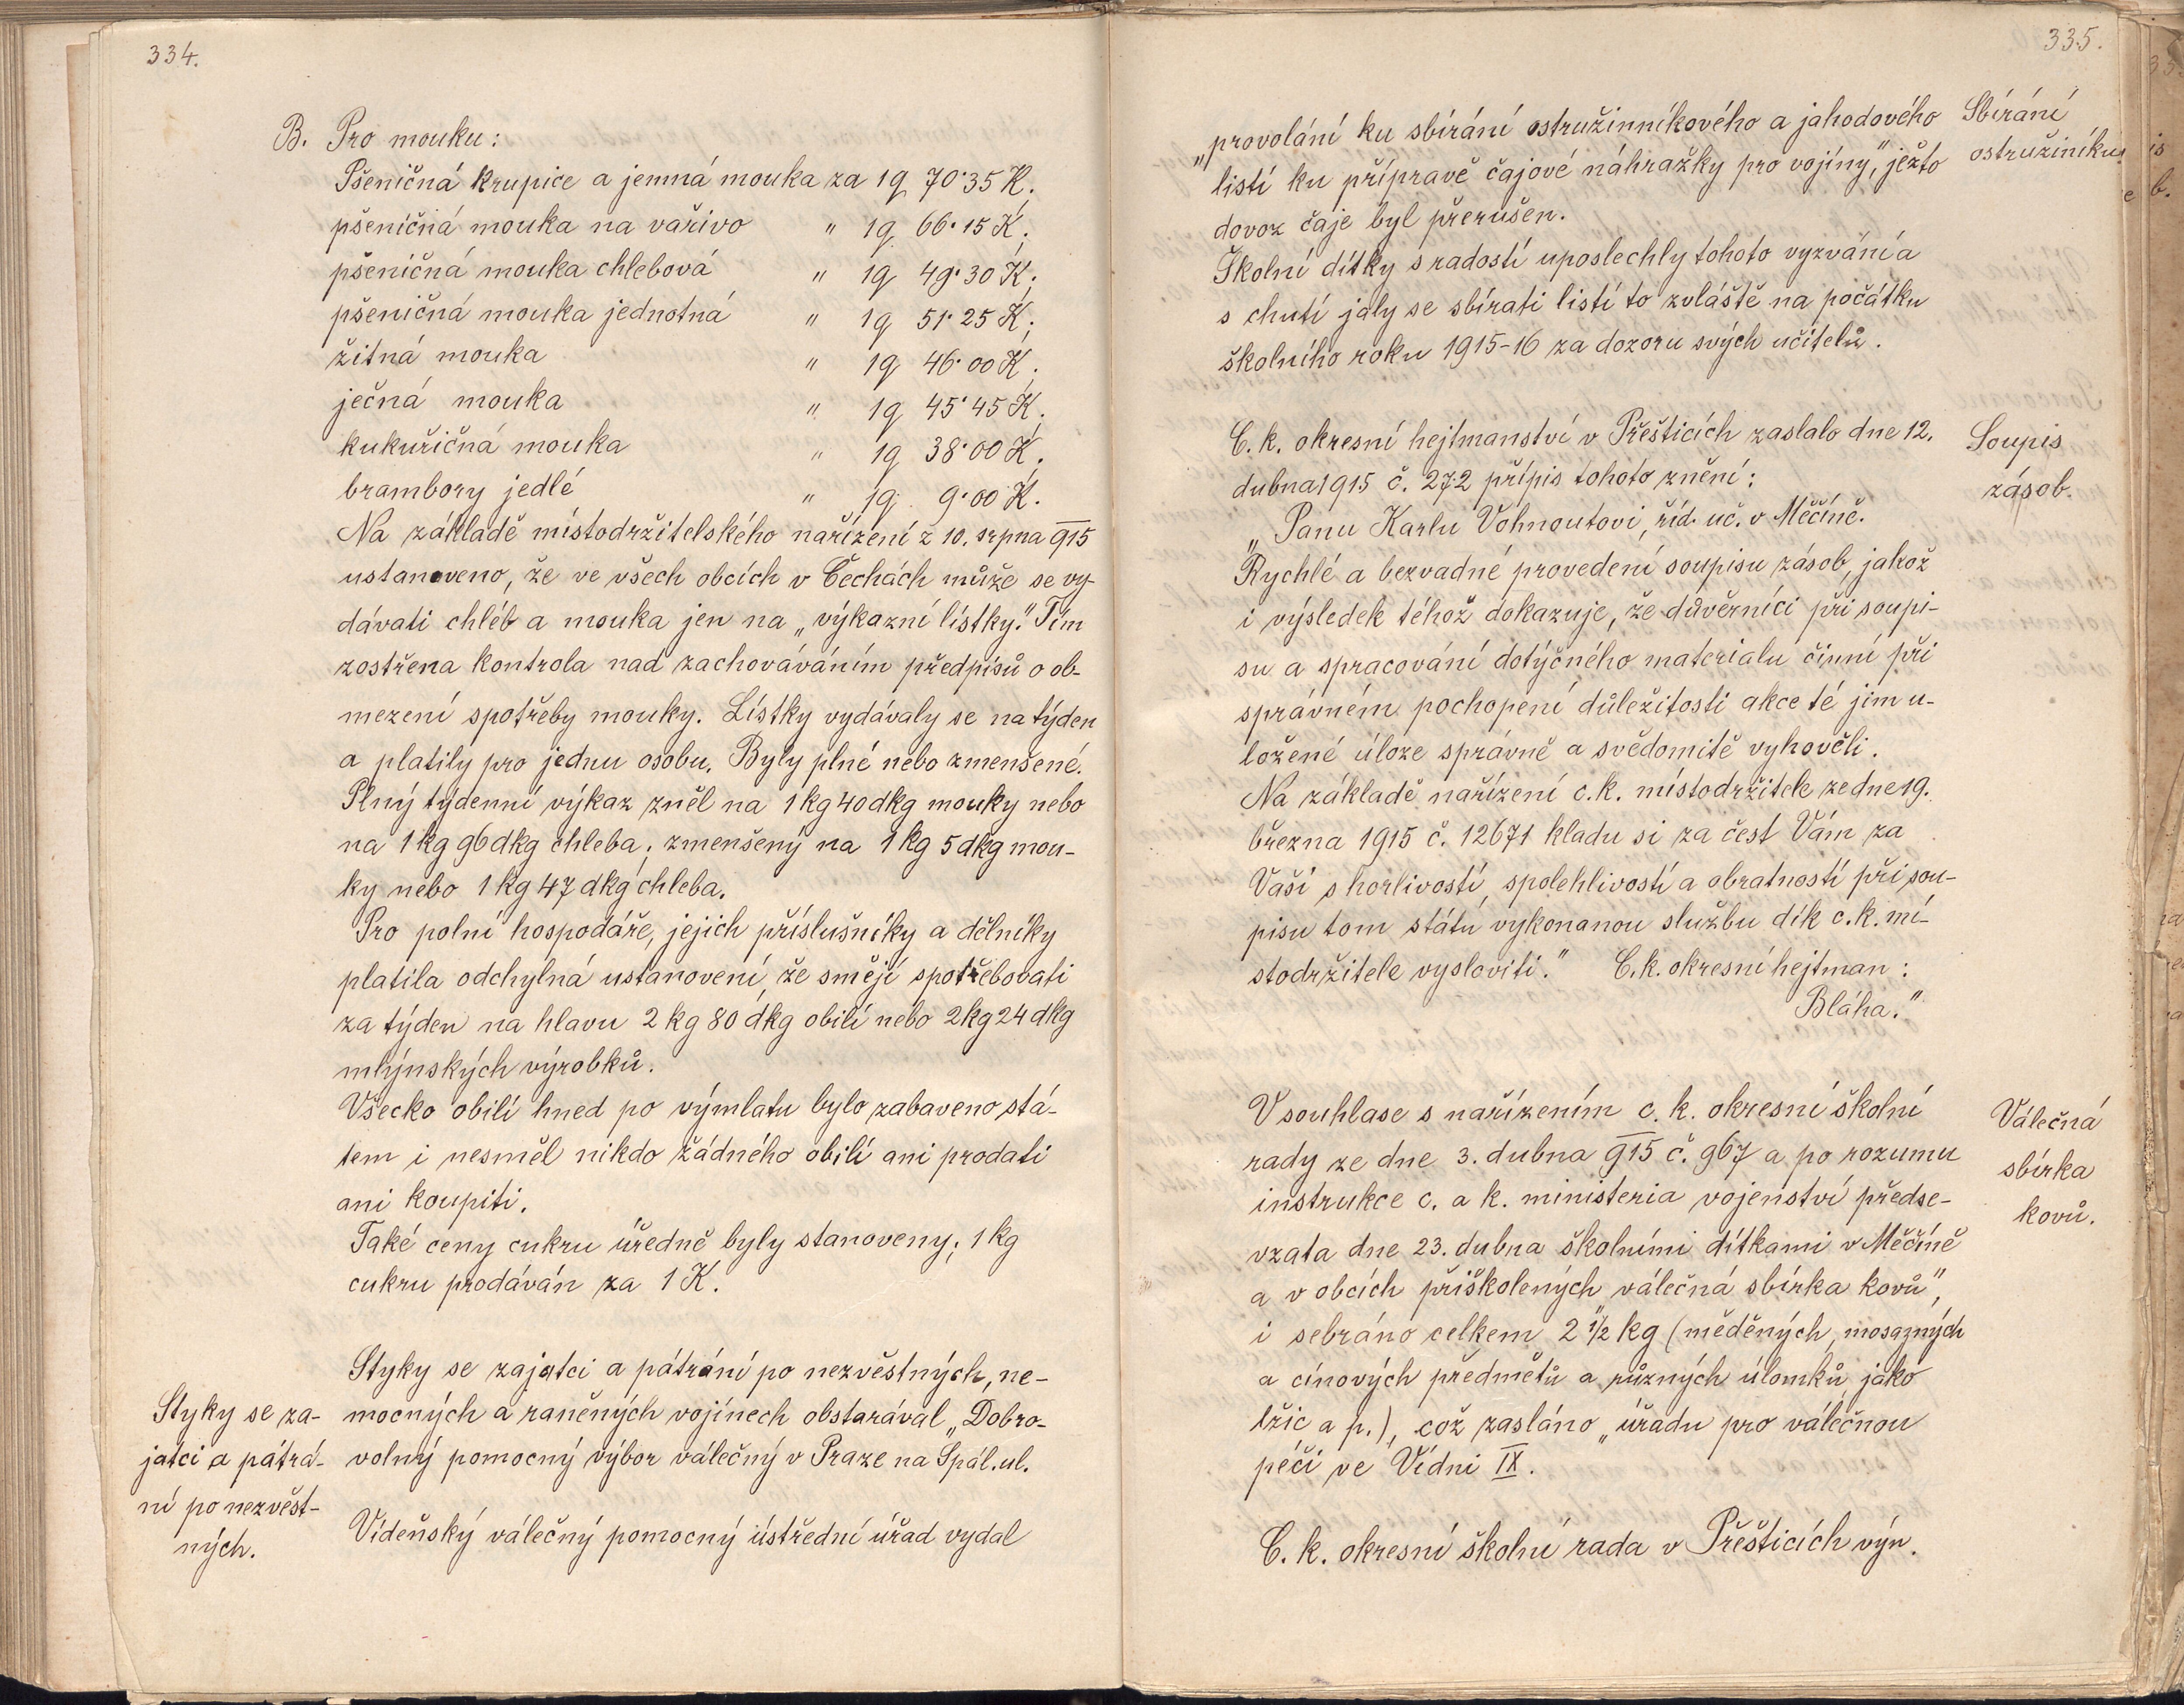 334.
B. Pro mouku:
Pšeničná krupice a jemná mouka za 1q 70·35 K;
pšeničná mouka na vařivo " 1q 66·15 K;
pšeničná mouka chlebová " 1q 49·30 K;
pšeničná mouka jednotná " 1q 51·25 K;
žitná mouka " 1q 46·00 K;
ječná mouka " 1q 45·45 K;
kukuřičná mouka " 1q 38·00 K;
brambory jedlé " 1q 9·00 K.
Na základě místodržitelského nařízení z 10. srpna 915
ustanoveno, že ve všech obcích v Čechách může se vy-
dávati chléb a mouka jen na „výkazní lístky." Tím
zostřena kontrola nad zachováváním předpisů o ob-
mezení spotřeby mouky. Lístky vydávaly se na týden
a platily pro jednu osobu. Byly plné nebo zmenšené.
Plný týdenní výkaz zněl na 1 kg 40 dkg mouky nebo
na 1 kg 96 dkg chleba; zmenšený na 1 kg 5 dkg mou-
ky nebo 1 kg 47 dkg chleba.
Pro polní hospodáře, jejich příslušníky a dělníky
platila odchylná ustanovení, že smějí spotřebovati
za týden na hlavu 2 kg 80 dkg obilí nebo 2 kg 24 dkg
mlýnských výrobků.
Všecko obilí hned po výmlatu bylo zabaveno stá-
tem i nesměl nikdo žádného obilí ani prodati
ani koupiti.
Také ceny cukru úředně byly stanoveny; 1 kg
cukru prodáván za 1 K.
Styky se za-
jatci a pátrá-
ní po nezvěst-
ných.
Styky se zajatci a pátrání po nezvěstných, ne-
mocných a raněných vojínech obstarával „Dobro-
volný pomocný výbor válečný v Praze na Spál. ul.
Vídeňský válečný pomocný ústřední úřad vydal
335.
„provolání ku sbírání ostružinníkového a jahodového
listí ku přípravě čajové náhražky pro vojíny", ježto
dovoz čaje byl přerušen.
Školní dítky s radostí uposlechly tohoto vyzvání a
s chutí jaly se sbírati listí to zvláště na počátku
školního roku 1915-16 za dozoru svých učitelů.
Sbírání
ostružiníku
C. k. okresní hejtmanství v Přešticích zaslalo dne 12.
dubna 1915 č. 272 přípis tohoto znění:
„Panu Karlu Vohnoutovi, říd. uč. v Měčíně.
Rychlé a bezvadné provedení soupisu zásob, jakož
i výsledek téhož dokazuje, že důvěrníci při soupi-
su a spracování dotýčného materialu činní při
správném pochopení důležitosti akce té jim u-
ložené úloze správně a svědomitě vyhověli.
Na základě nařízení c. k. místodržitele ze dne 19.
března 1915 č. 12671 kladu si za čest Vám za
Vaší s horlivostí, spolehlivostí a obratností při sou-
pisu tom státu vykonanou službu dík c. k. mí-
stodržitele vysloviti." C. k. okresní hejtman:
Bláha."
Soupis
zásob.
V souhlase s nařízením c. k. okresní školní
rady ze dne 3. dubna 915 č. 967 a po rozumu
instrukce c. a k. ministeria vojenství předse-
vzata dne 23. dubna školními dítkami v Měčíně
a v obcích přiškolených válečná sbírka kovů",
i sebráno celkem 2 1/2 kg (měděných, mosazných
a cínových předmětů a různých úlomků, jako
lžic a p.), což zasláno „úřadu pro válečnou
péči ve Vídni IX.
Válečná
sbírka
kovů.
C. k. okresní školní rada v Přešticích výn.